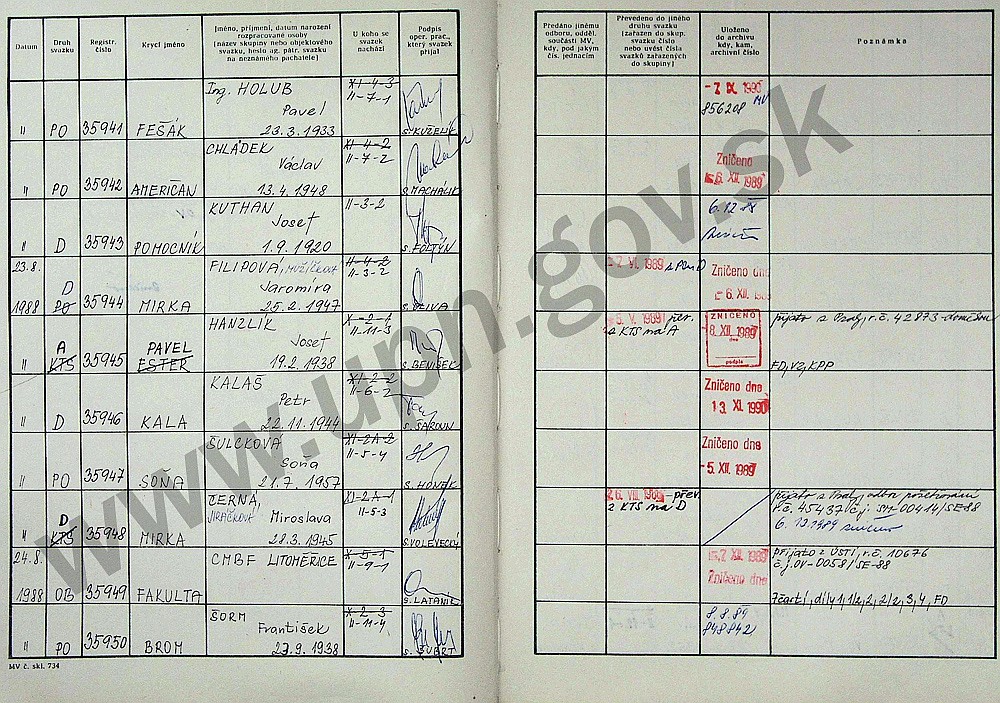 Datum
Druh svazku
Registr. číslo
Krycí jméno
Jméno, příjmení, datum narození
rozpracované osoby
[název skupiny nebo objektového
svazku, heslo ag. pátr. svazku
na neznámého pachatele]
U koho se
svazek
nachází
Podpis
oper. prac.,
který svazek
přijal
Předáno jinému
odboru, odděl.
součásti MV,
kdy, pod jakým
čís. jednacím
Převedeno do jiného
druhu svazku
[zařazen do skup.
svazku číslo
nebo uvést čísla
svazků zařazených
do skupiny]
Uloženo
do archivu
kdy, kam,
archivní číslo
Poznámka
Ing. HOLUB
Pavel
" PO 35941 FEŠÁK 23.3.1933
XI-4-3
II-7-1
S. KUŽELÍK
-7. IX 1990
856208 MV
CHLÁDEK
Václav
" PO 35942 AMERIČAN 13.4.1948
XI-4-2
II-7-2
S. MACHÁLIK
Zničeno
6. XII. 1989
KUTHAN
Josef
" D 35943 POMOCNÍK 1.9.1920
II-3-2
S. FOLTÝN
6.12 88
23.8.
1988
FILIPOVÁ, MUŽÍČKOVÁ
Jaromíra
D
PO 35944 MIRKA 25.2.1947
II-4-2
II-3-2
S. OLIVA
-7. VI. 1989 s PO na D
Zničeno dne
-6. XII. 1989
HANZLÍK
Josef
A PAVEL
" KTS 35945 ESTER 19.2.1938
X-2-1
II-11-3
S. BENÍŠEK
-3. V. 1989 přev.
s KTS na A
ZNIČENO
-8. XII. 1989
dne
podpis
přijato s Prahy, r.č. 42873-
FD, VZ, KPP
KALAŠ
Petr
" D 35946 KALA 22.11.1944
XI-2-2
II-6-2
S. ŠAROUN
Zničeno dne
13. XI. 1990
ŠULCKOVÁ
Soňa
" PO 35947 SOŇA 21.7.1957
XI-2A-2
II-5-4
S. HONEK
Zničeno dne
-5. XII. 1989
ČERNÁ,
JIRÁČKOVÁ Miroslava
D
" KTS 35948 MIRKA 28.3.1945
XI-2A-1
II-5-3
S. VOLEVECKÝ
26. VIII. 1988 -přev.
z KTS na D
přijato s Prahy, odbor
r.č. 45437 č.j. SM-00414/SE-88
6. 12.1989
24.8.
1988 OB 35949 FAKULTA
CMBF LITOMĚŘICE
X-5-1
II-9-1
S. LATANIE
-7. XII. 1989
Zničeno dne
přijato z ÚSTÍ, r.č. 10676
č.j. OV-0058/SE-88
7 částí, díly 1, 1/2, 2, 2/2, 3, 4, FD
ŠORM
František
" PO 35950 BROM 23.9.1938
X-2-3
II-11-4
S. ŠUBRT
8.8.89
848842
MV č. skl. 734
www.upn.gov.sk